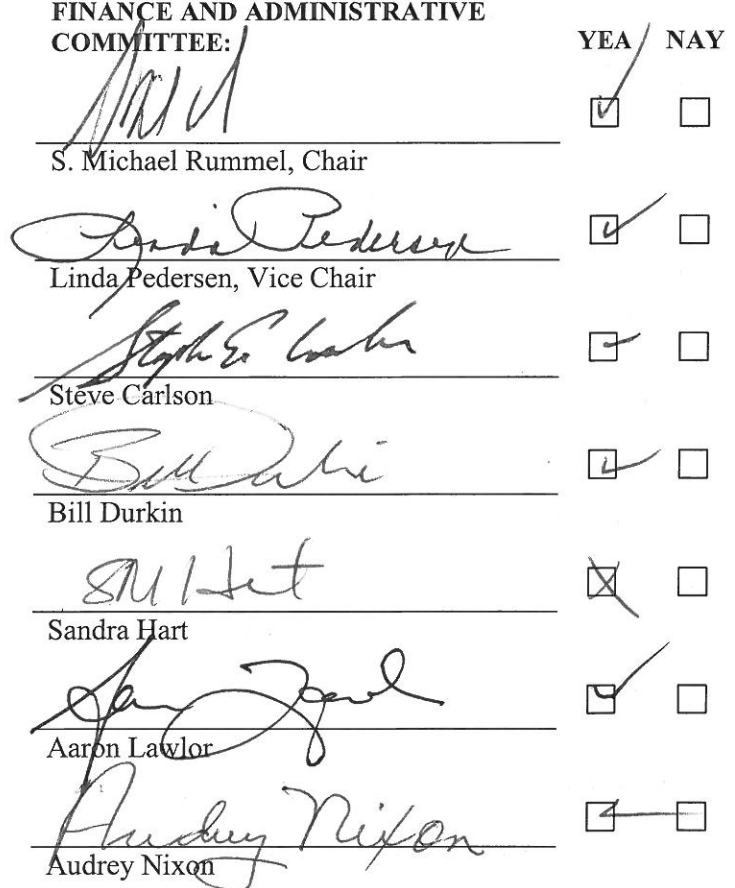 FINANCE AND ADMINISTRATIVE
COMMITTEE: YEA NAY
S. Michael Rummel, Chair
Linda Pedersen
Linda Pedersen, Vice Chair
Steve Carlson
Bill Durkin
Bill Durkin
SM Hart
Sandra Hart
Aaron Lawlor
Audrey Nixon
Audrey Nixon